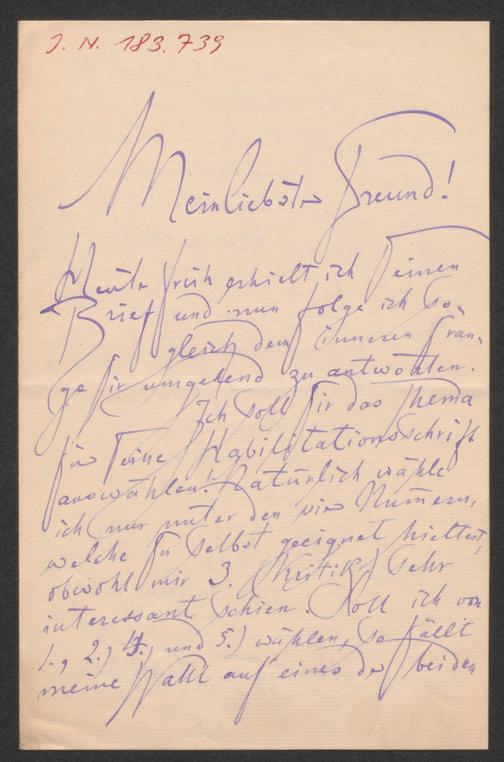 J. N. 183.739
Mein liebster Freund!
Heute früh erhielt ich Deinen
Brief und nun folge ich so-
gleich dem inneren Dran-
ge Dir umgehend zu antworten.
Ich soll Dir das Thema
für Deine Habilitationsschrift
auswählen! Natürlich wähle
ich nur unter den vier Numern,
welche Du selbst geeignet hieltest,
obwohl mir 3. (Kritik) sehr
interessant schien. Soll ich von
1., 2.) 4., und 5.) wählen, so fällt
meine Wahl auf eines der beiden